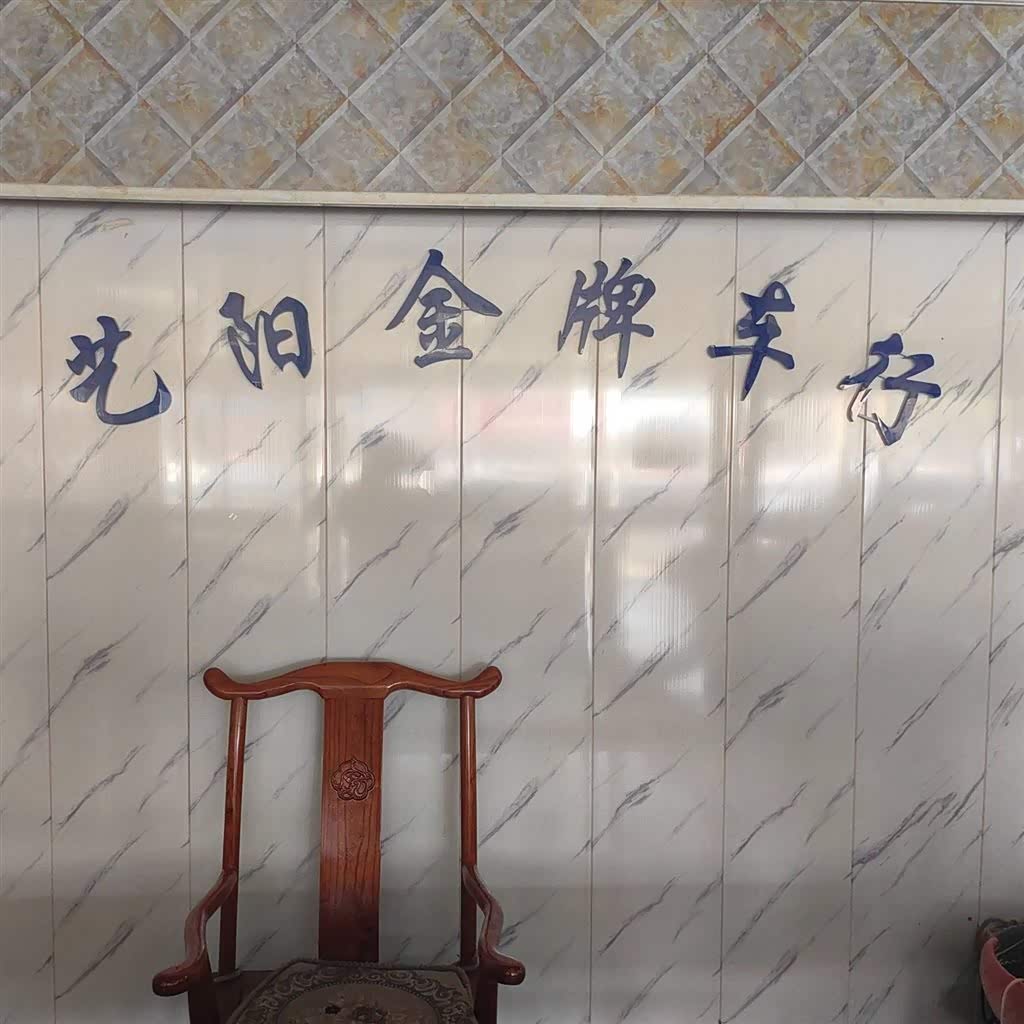 艺阳金牌车行